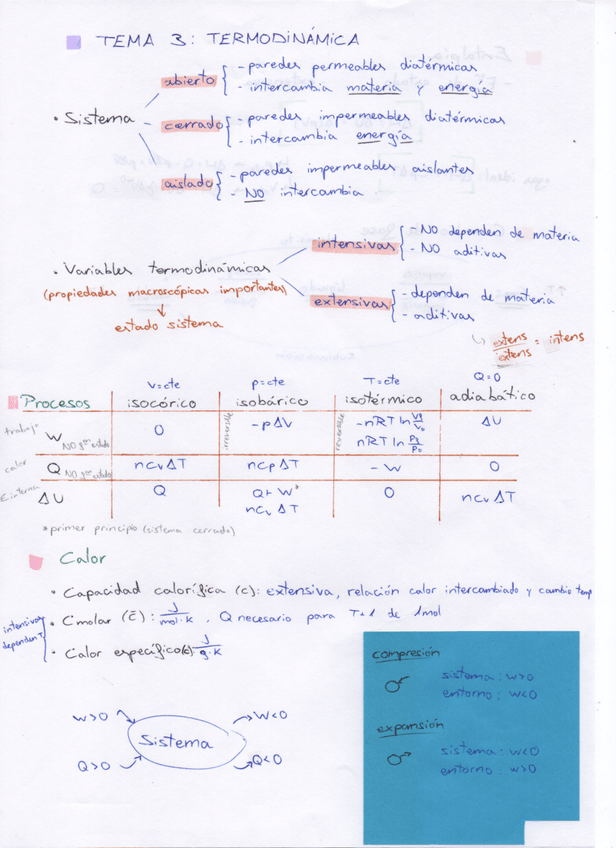 TEMA 3: TERMODINÁMICA
• Sistema
abierto
- paredes permeables diatérmicas
- intercambia materia y energía
cerrado
- paredes impermeables diatérmicas
- intercambia energía
aislado
- paredes impermeables aislantes
- NO intercambia
• Variables termodinámicas
(propiedades macroscópicas importantes)
estado sistema
intensivas
- NO dependen de materia
- NO aditivas
extensivas
- dependen de materia
- aditivas
extens/extens = intens
V=cte p=cte T=cte Q=0
Procesos isocórico isobárico isotérmico adiabático
trabajo W 0 irreversible -pΔV reversible -nRT ln ΔU
nRT ln
calor Q ncvΔT ncpΔT -W 0
E. interna ΔU Q Q+W* 0 ncvΔT
ncvΔT
*primer principio (sistema cerrado)
Calor
• Capacidad calorífica (c): extensiva, relación calor intercambiado y cambio temp
intensivas dependen T
• C molar (c̄): J/mol·K. Q necesario para T+1 de 1mol
• Calor específico(c) J/g·K
W>0
Q>0
Sistema
W<0
Q<0
compresión
sistema: W>0
entorno: W<0
expansión
sistema: W<0
entorno: W>0